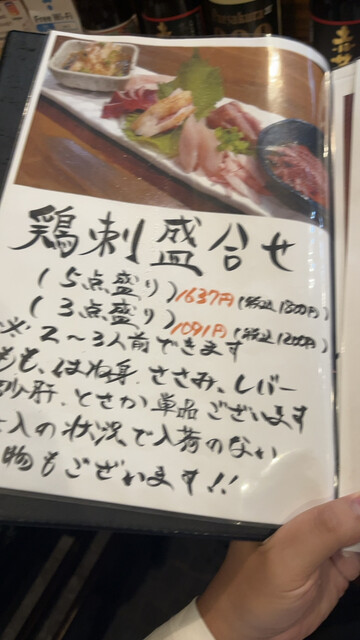 Free Wi-Fi
鶏刺盛合せ
(5点盛り) 1637円(税込1800円)
(3点盛り) 1091円(税込1200円)
※2~3人前できます
もも、はね身、ささみ、レバー
砂肝、とさか単品ございます
入の状況で入荷のない
物もございます!!